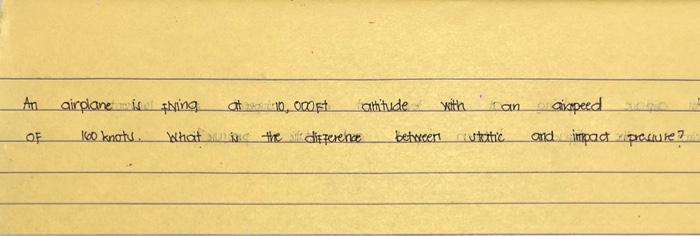 An airplane is flying at 10,000Ft altitude with an airspeed
OF 160 knots. What is the difference between static and impact pressure?